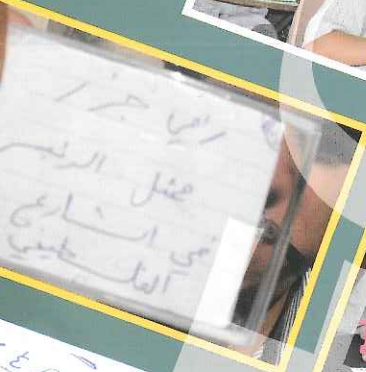 رامي جزر
ممثل الرئيس
في الشارع
الفلسطيني